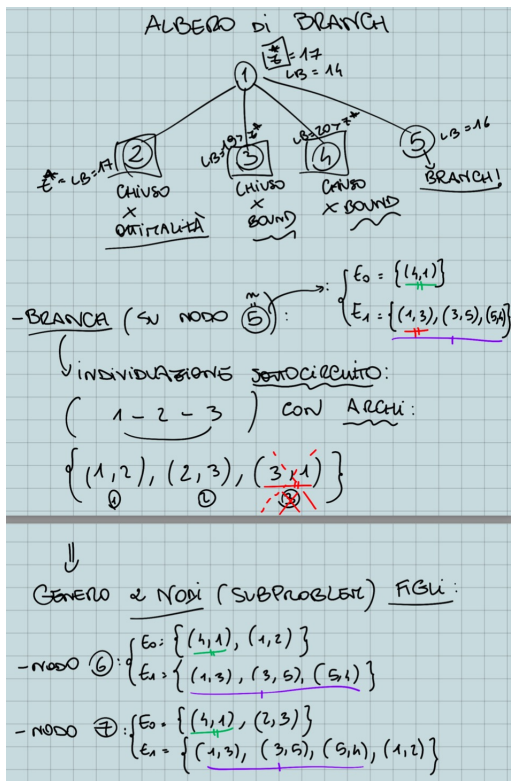 ALBERO DI BRANCH
z* = 17
LB = 14
1
z* = LB = 17
2
CHIUSO
X
OTTIMALITÀ
LB = 19 > z*
3
CHIUSO
X
BOUND
LB = 20 > z*
4
CHIUSO
X BOUND
5
LB = 16
BRANCH!
- BRANCH (SU NODO 5) :
E0 = {(4,1)}
E1 = {(1,3), (3,5), (5,4)}
INDIVIDUAZIONE SOTTOCIRCUITO:
( 1 - 2 - 3 ) CON ARCHI:
{(1,2), (2,3), (3,1)}
1 2 3
⇓
GENERO 2 NODI (SUBPROBLEM) FIGLI:
- NODO 6 : E0 : {(4,1), (1,2)}
E1 = {(1,3), (3,5), (5,4)}
- NODO 7 : E0 = {(4,1), (2,3)}
E1 = {(1,3), (3,5), (5,4), (1,2)}